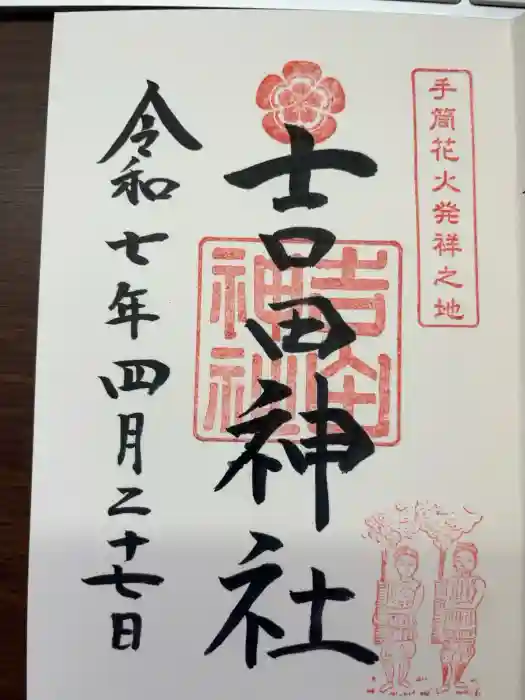 手筒花火発祥之地
吉田神社
吉田
神社
令和七年四月二十七日